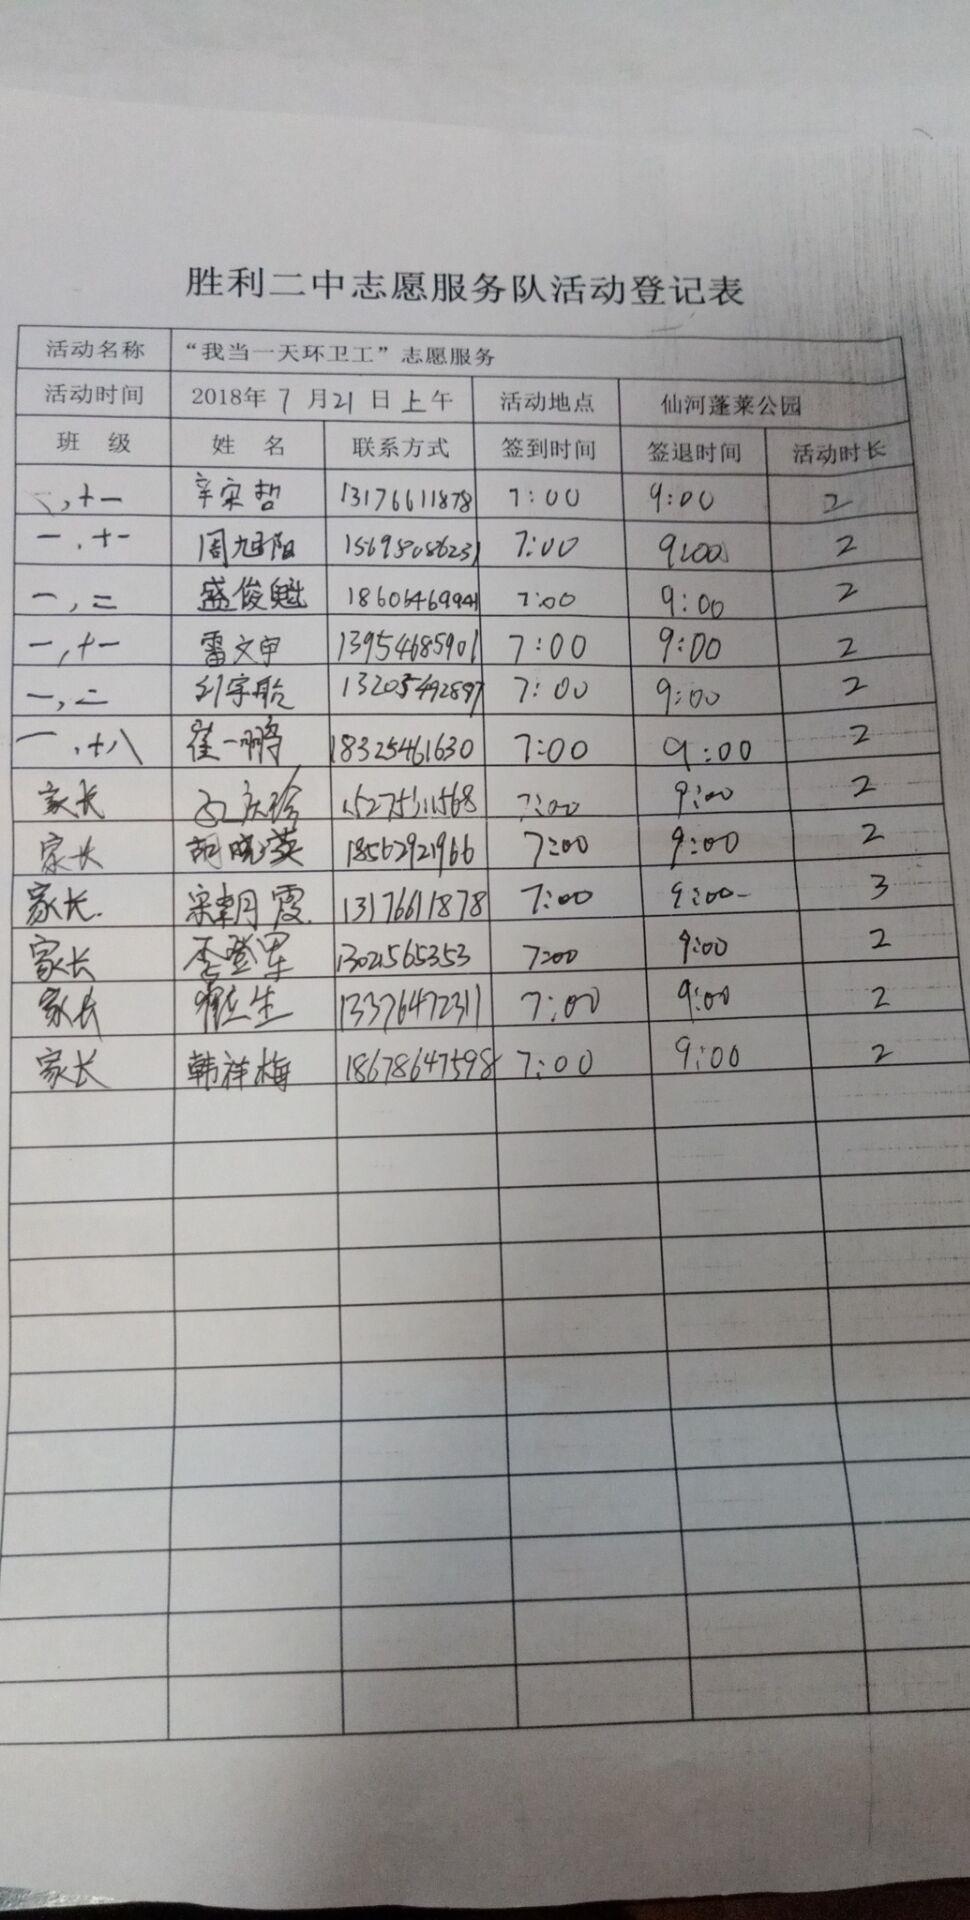 胜利二中志愿服务队活动登记表
活动名称 “我当一天环卫工”志愿服务
活动时间 2018年7月21日上午 活动地点 仙河蓬莱公园
班 级 姓 名 联系方式 签到时间 签退时间 活动时长
一,十一 辛宋哲 13176611878 7:00 9:00 2
一.十一 周旭阳 15698086231 7:00 9:00 2
一,二 盛俊魁 18606469941 7:00 9:00 2
一,十一 雷文宇 13954685901 7:00 9:00 2
一,二 刘宇航 13205492897 7:00 9:00 2
一,十八 崔一鹏 18325461630 7:00 9:00 2
家长 庆珍 15275111568 7:00 9:00 2
家长 胡晓英 18562921966 7:00 9:00 2
家长. 宋朝霞. 13176611878 7:00 9:00- 3
家长 李登军 13021565353 7:00 9:00 2
家长 生 13376472311 7:00 9:00 2
家长 韩祥梅 18678647598 7:00 9:00 2